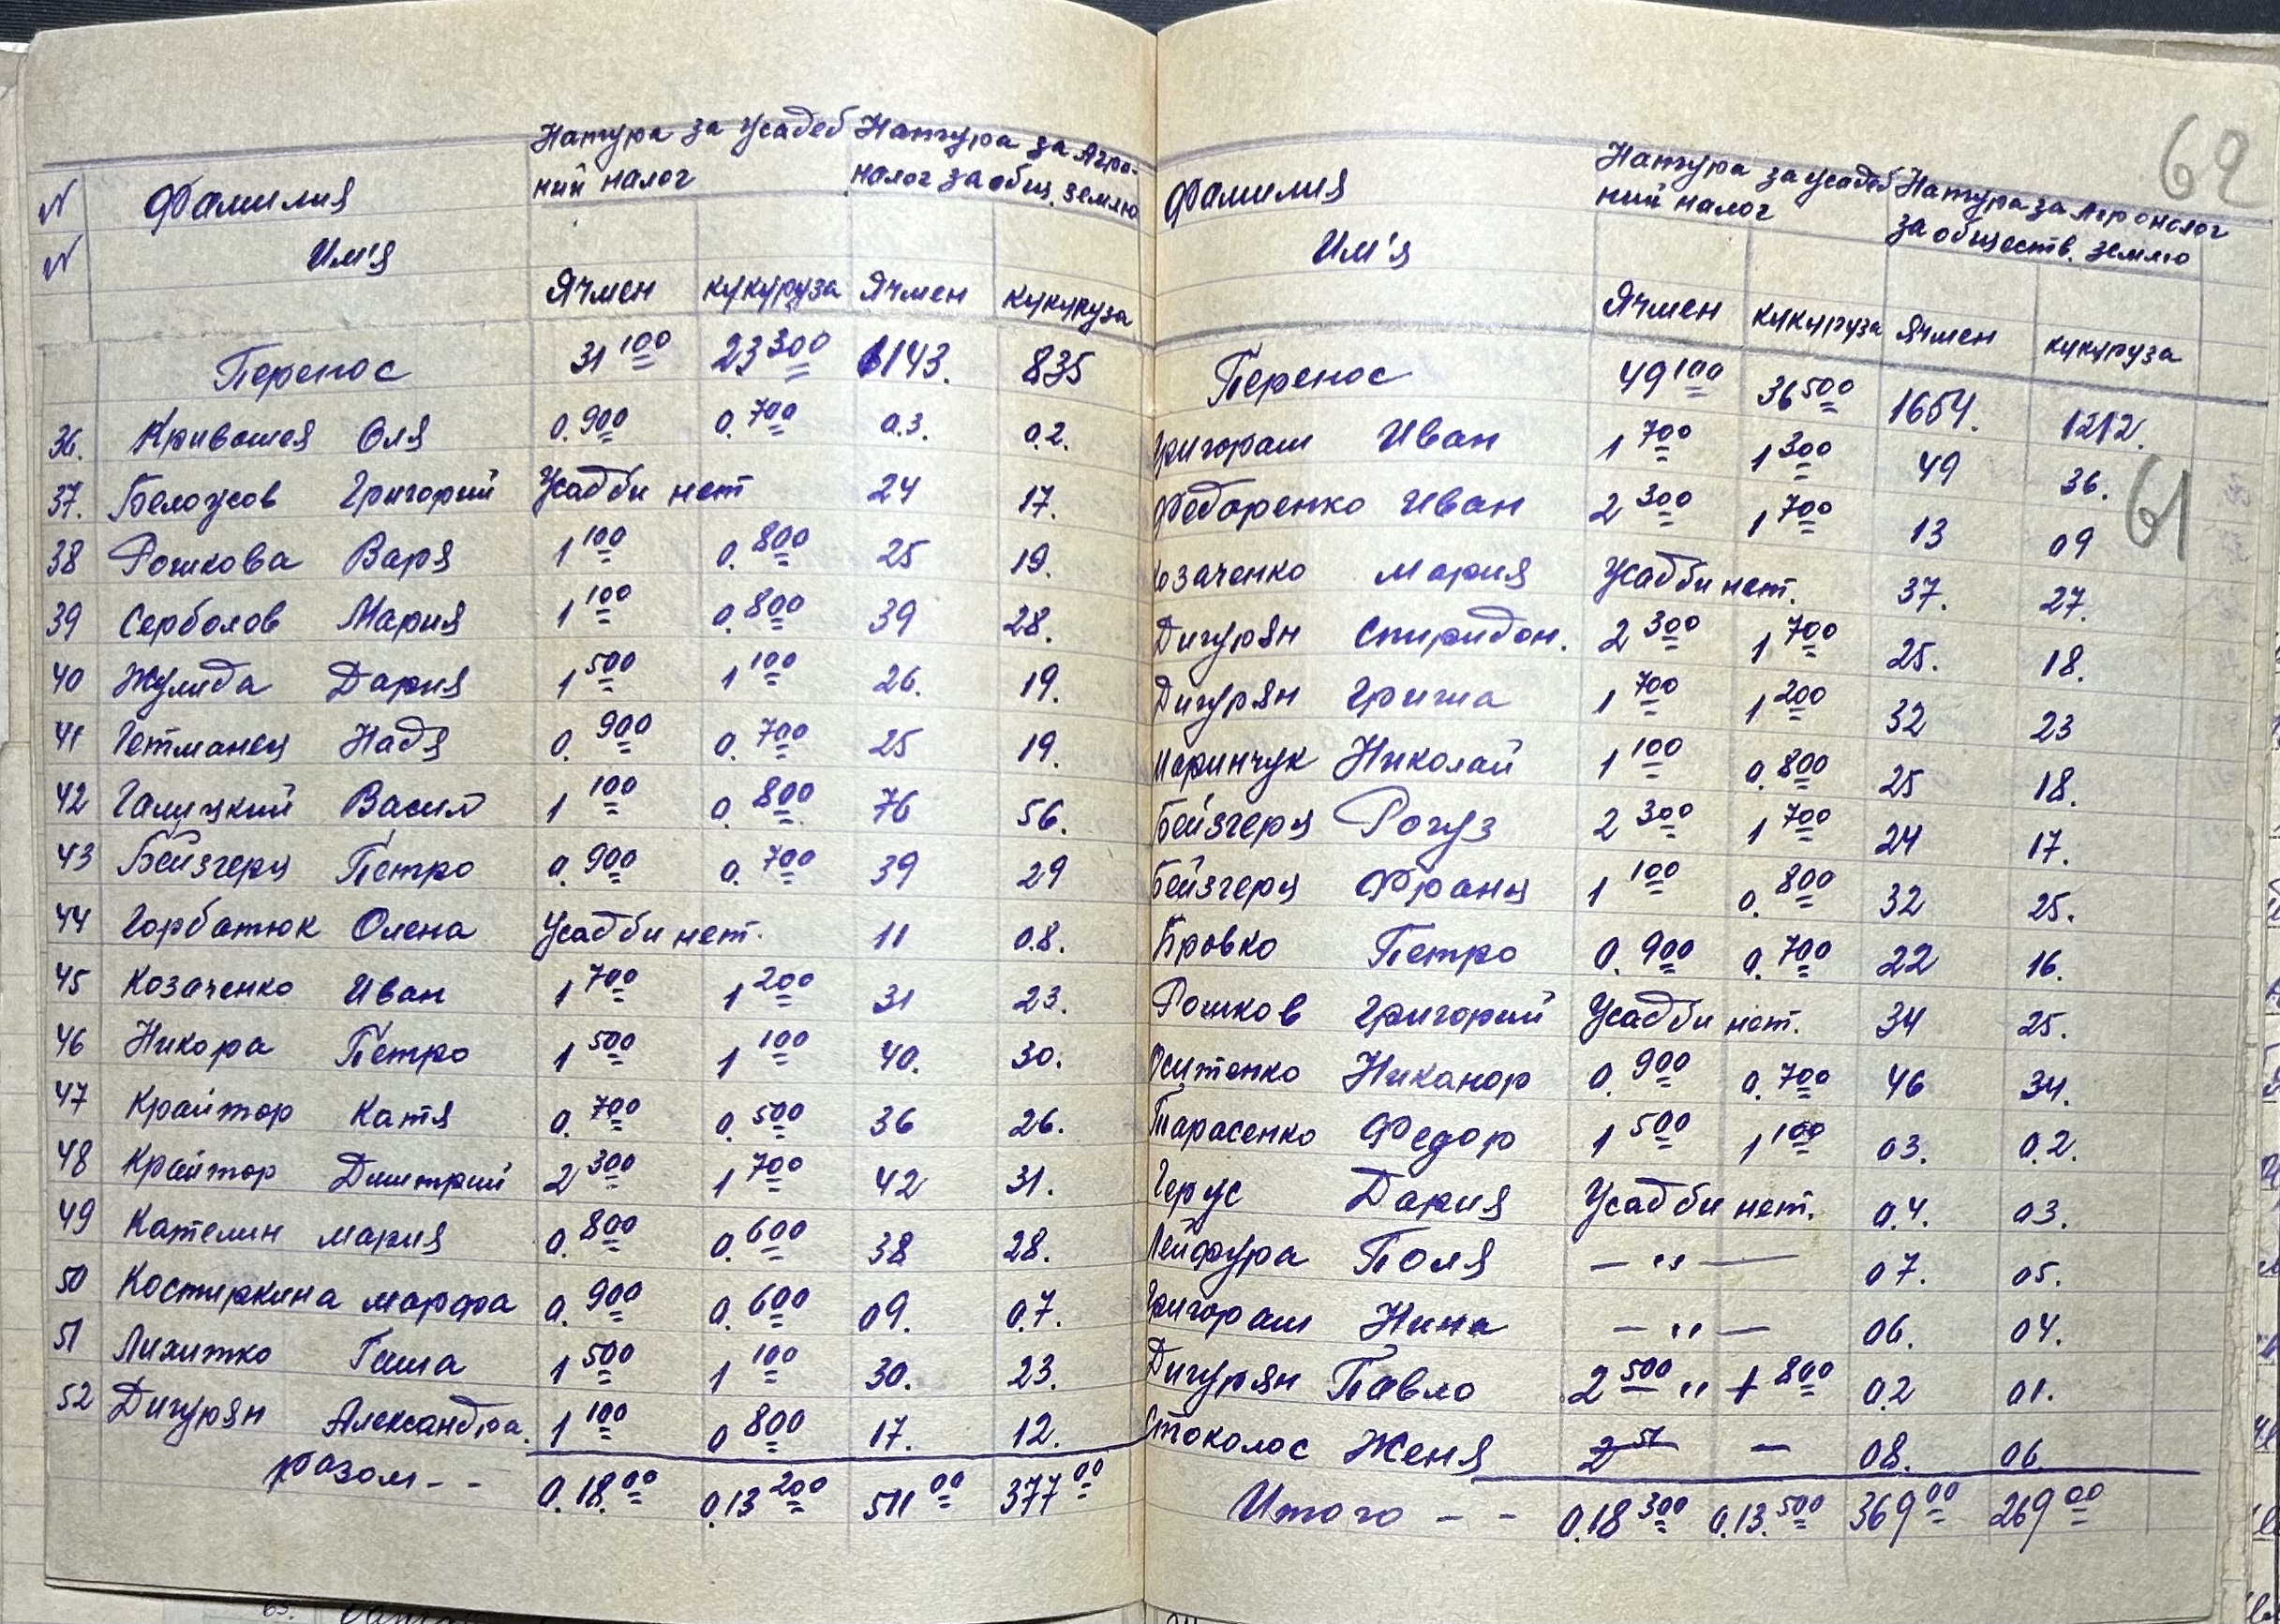 Натура за усадеб Натура за Агро-
№ Фамилия ний налог налог за общ. землю
№ Им'я
Ячмен кукуруза Ячмен кукуруза
Перенос 31 100 23 300 1143. 835
36. Кривошея Оля 0.900 0.700 0.3. 0.2.
37. Белоусов Григорий Усадби нет 24 17.
38 Рошкова Варя 1 100 0.800 25 19.
39 Серболов Мария 1 100 0.800 39 28.
40 Жулида Дария 1 500 1 100 26. 19.
41 Гетманец Надя 0.900 0.700 25 19.
42 Галицкий Васил 1 100 0.800 76 56.
43 Бейзгерц Петро 0.900 0.700 39 29
44 Горбатюк Олена Усадби нет. 11 0.8.
45 Козаченко Иван 1 700 1 200 31 23.
46 Никора Петро 1 500 1 100 40. 30.
47 Крайтор Катя 0.700 0.500 36 26.
48 Крайтор Дмитрий 2 300 1 700 42 31.
49 Кателин мария 0.800 0.600 38 28.
50 Костиркина марфа 0.900 0.600 09. 0.7.
51 Лихитко Гаша 1 500 1 100 30. 23.
52 Дигурян Александра. 1 100 0 800 17. 12.
разом - - 0.18.00 0.13 200 511 00 377 00
62
Натура за усадеб Натура за Агроналог
Фамилия ний налог за обществ. землю
Им'я
Ячмен кукуруза Ячмен кукуруза
Перенос 49 100 36 500 1654. 1212.
Григораш Иван 1 700 1 300 49 36.
61
Федоренко Иван 2 300 1 700 13 09
Козаченко Мария Усадби нет. 37. 27.
Дигурян Спиридон. 2 300 1 700 25. 18.
Дигурян Гриша 1 700 1 200 32 23
Маринчук Николай 1 100 0.800 25 18.
Бейзгерц Рогуз 2 300 1 700 24 17.
Бейзгерц Франц 1 100 0.800 32 25.
Бровко Петро 0.900 0.700 22 16.
Рошков Григорий Усадби нет. 34 25.
Оситенко Никанор 0.900 0.700 46 34.
Тарасенко Федор 1 500 1 100 03. 0.2.
Герус Дария Усадби нет. 0.4. 03.
Лейфура Поля — " — 07. 05.
Григораш Нина — " — 06. 04.
Дигурян Павло 2 500 " 1 800 0.2 01.
Стоколос Женя 2 51 — 08. 06
Итого - - 0.18 300 0.13.500 369 00 269 00